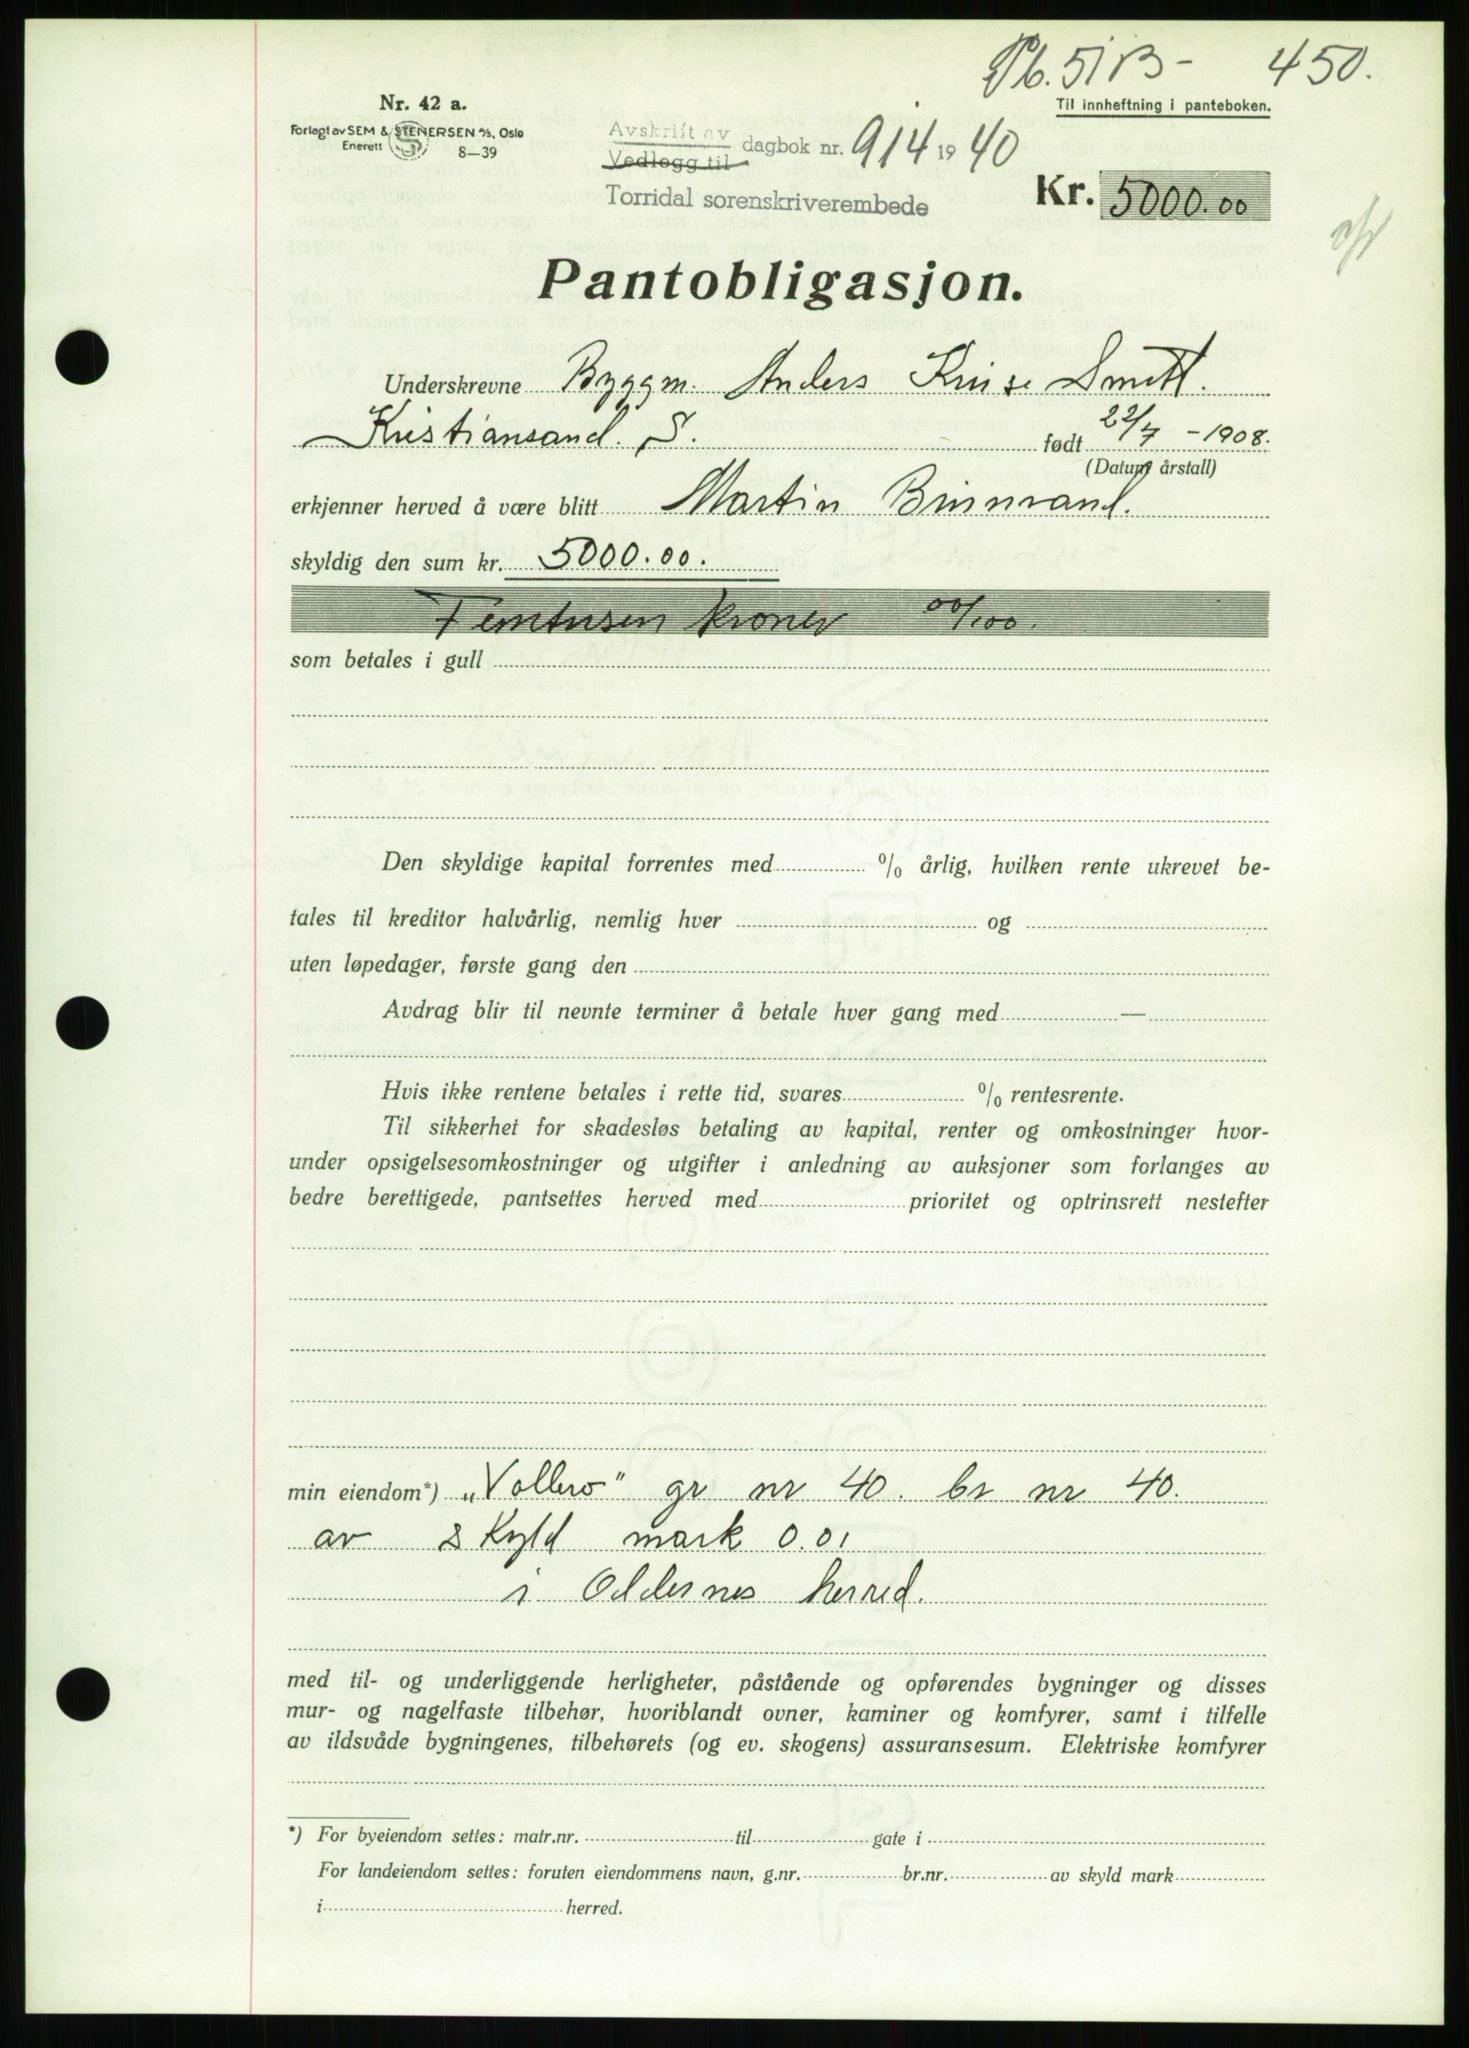 Pb. 51B - 450.
Nr. 42 a.
Til innheftning i panteboken.
Forlagt av SEM & STENERSEN A/S, Oslo
Enerett 8—39
Avskrift av
Vedlegg til dagbok nr. 914 1940
Torridal sorenskriverembede
Kr. 5000.00
Pantobligasjon.
Underskrevne Byggm. Anders Kruse Smith.
Kristiansand. S. født 22/7 - 1908.
(Datum årstall)
erkjenner herved å være blitt Martin
skyldig den sum kr. 5000.00.
Femtusen kroner 00/100.
som betales i gull
Den skyldige kapital forrentes med % årlig, hvilken rente ukrevet be-
tales til kreditor halvårlig, nemlig hver og
uten løpedager, første gang den
Avdrag blir til nevnte terminer å betale hver gang med —
Hvis ikke rentene betales i rette tid, svares % rentesrente.
Til sikkerhet for skadesløs betaling av kapital, renter og omkostninger hvor-
under opsigelsesomkostninger og utgifter i anledning av auksjoner som forlanges av
bedre berettigede, pantsettes herved med prioritet og optrinsrett nestefter
min eiendom*) „Vollero" gr nr 40. br nr 40.
av skyld mark 0.01
i Oddernes herred.
med til- og underliggende herligheter, påstående og opførendes bygninger og disses
mur- og nagelfaste tilbehør, hvoriblandt ovner, kaminer og komfyrer, samt i tilfelle
av ildsvåde bygningenes, tilbehørets (og ev. skogens) assuransesum. Elektriske komfyrer
*) For byeiendom settes: matr.nr. til gate i
For landeiendom settes: foruten eiendommens navn, g.nr. br.nr. av skyld mark
i herred.